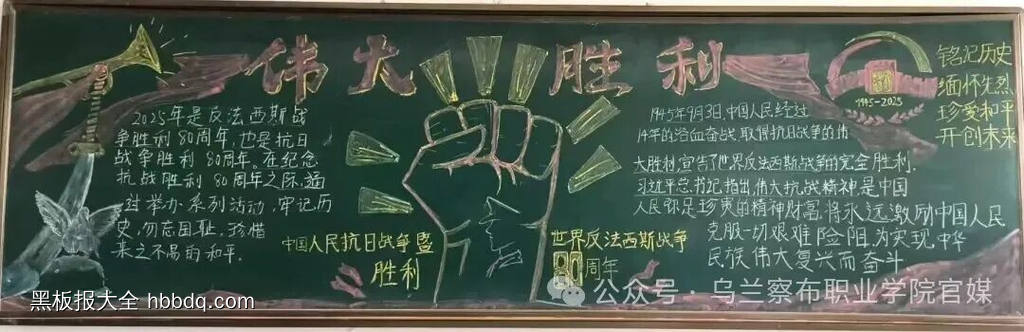 伟大胜利
2025年是反法西斯战
争胜利80周年,也是抗日
战争胜利80周年。在纪念
抗战胜利80周年之际,通
过举办系列活动,牢记历
史,勿忘国耻,珍惜
来之不易的和平。
中国人民抗日战争暨
胜利
世界反法西斯战争
80周年
1945年9月3日,中国人民经过
14年的浴血奋战,取得抗日战争的伟
大胜利,宣告了世界反法西斯战争的完全胜利.
习近平总书记指出,伟大抗战精神是中国
人民弥足珍贵的精神财富,将永远激励中国人民
克服一切艰难险阻,为实现中华
民族伟大复兴而奋斗
1945-2025
铭记历史
缅怀先烈
珍爱和平
开创未来
黑板报大全 hbbdq.com
公众号·乌兰察布职业学院官媒